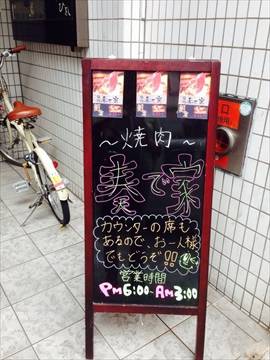 ～焼肉～
奏で家
カウンターの席も
あるので、お一人様
でもどうぞ!!
営業時間
PM6:00~AM3:00